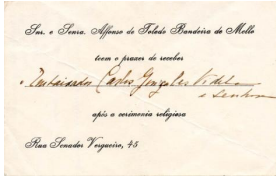 Snr. e Senra. Affonso de Toledo Bandeira de Mello
teem o prazer de receber
o Embaixador Carlos Gonzales Videla
e senhora
após a cerimonia religiosa
Rua Senador Vergueiro, 45